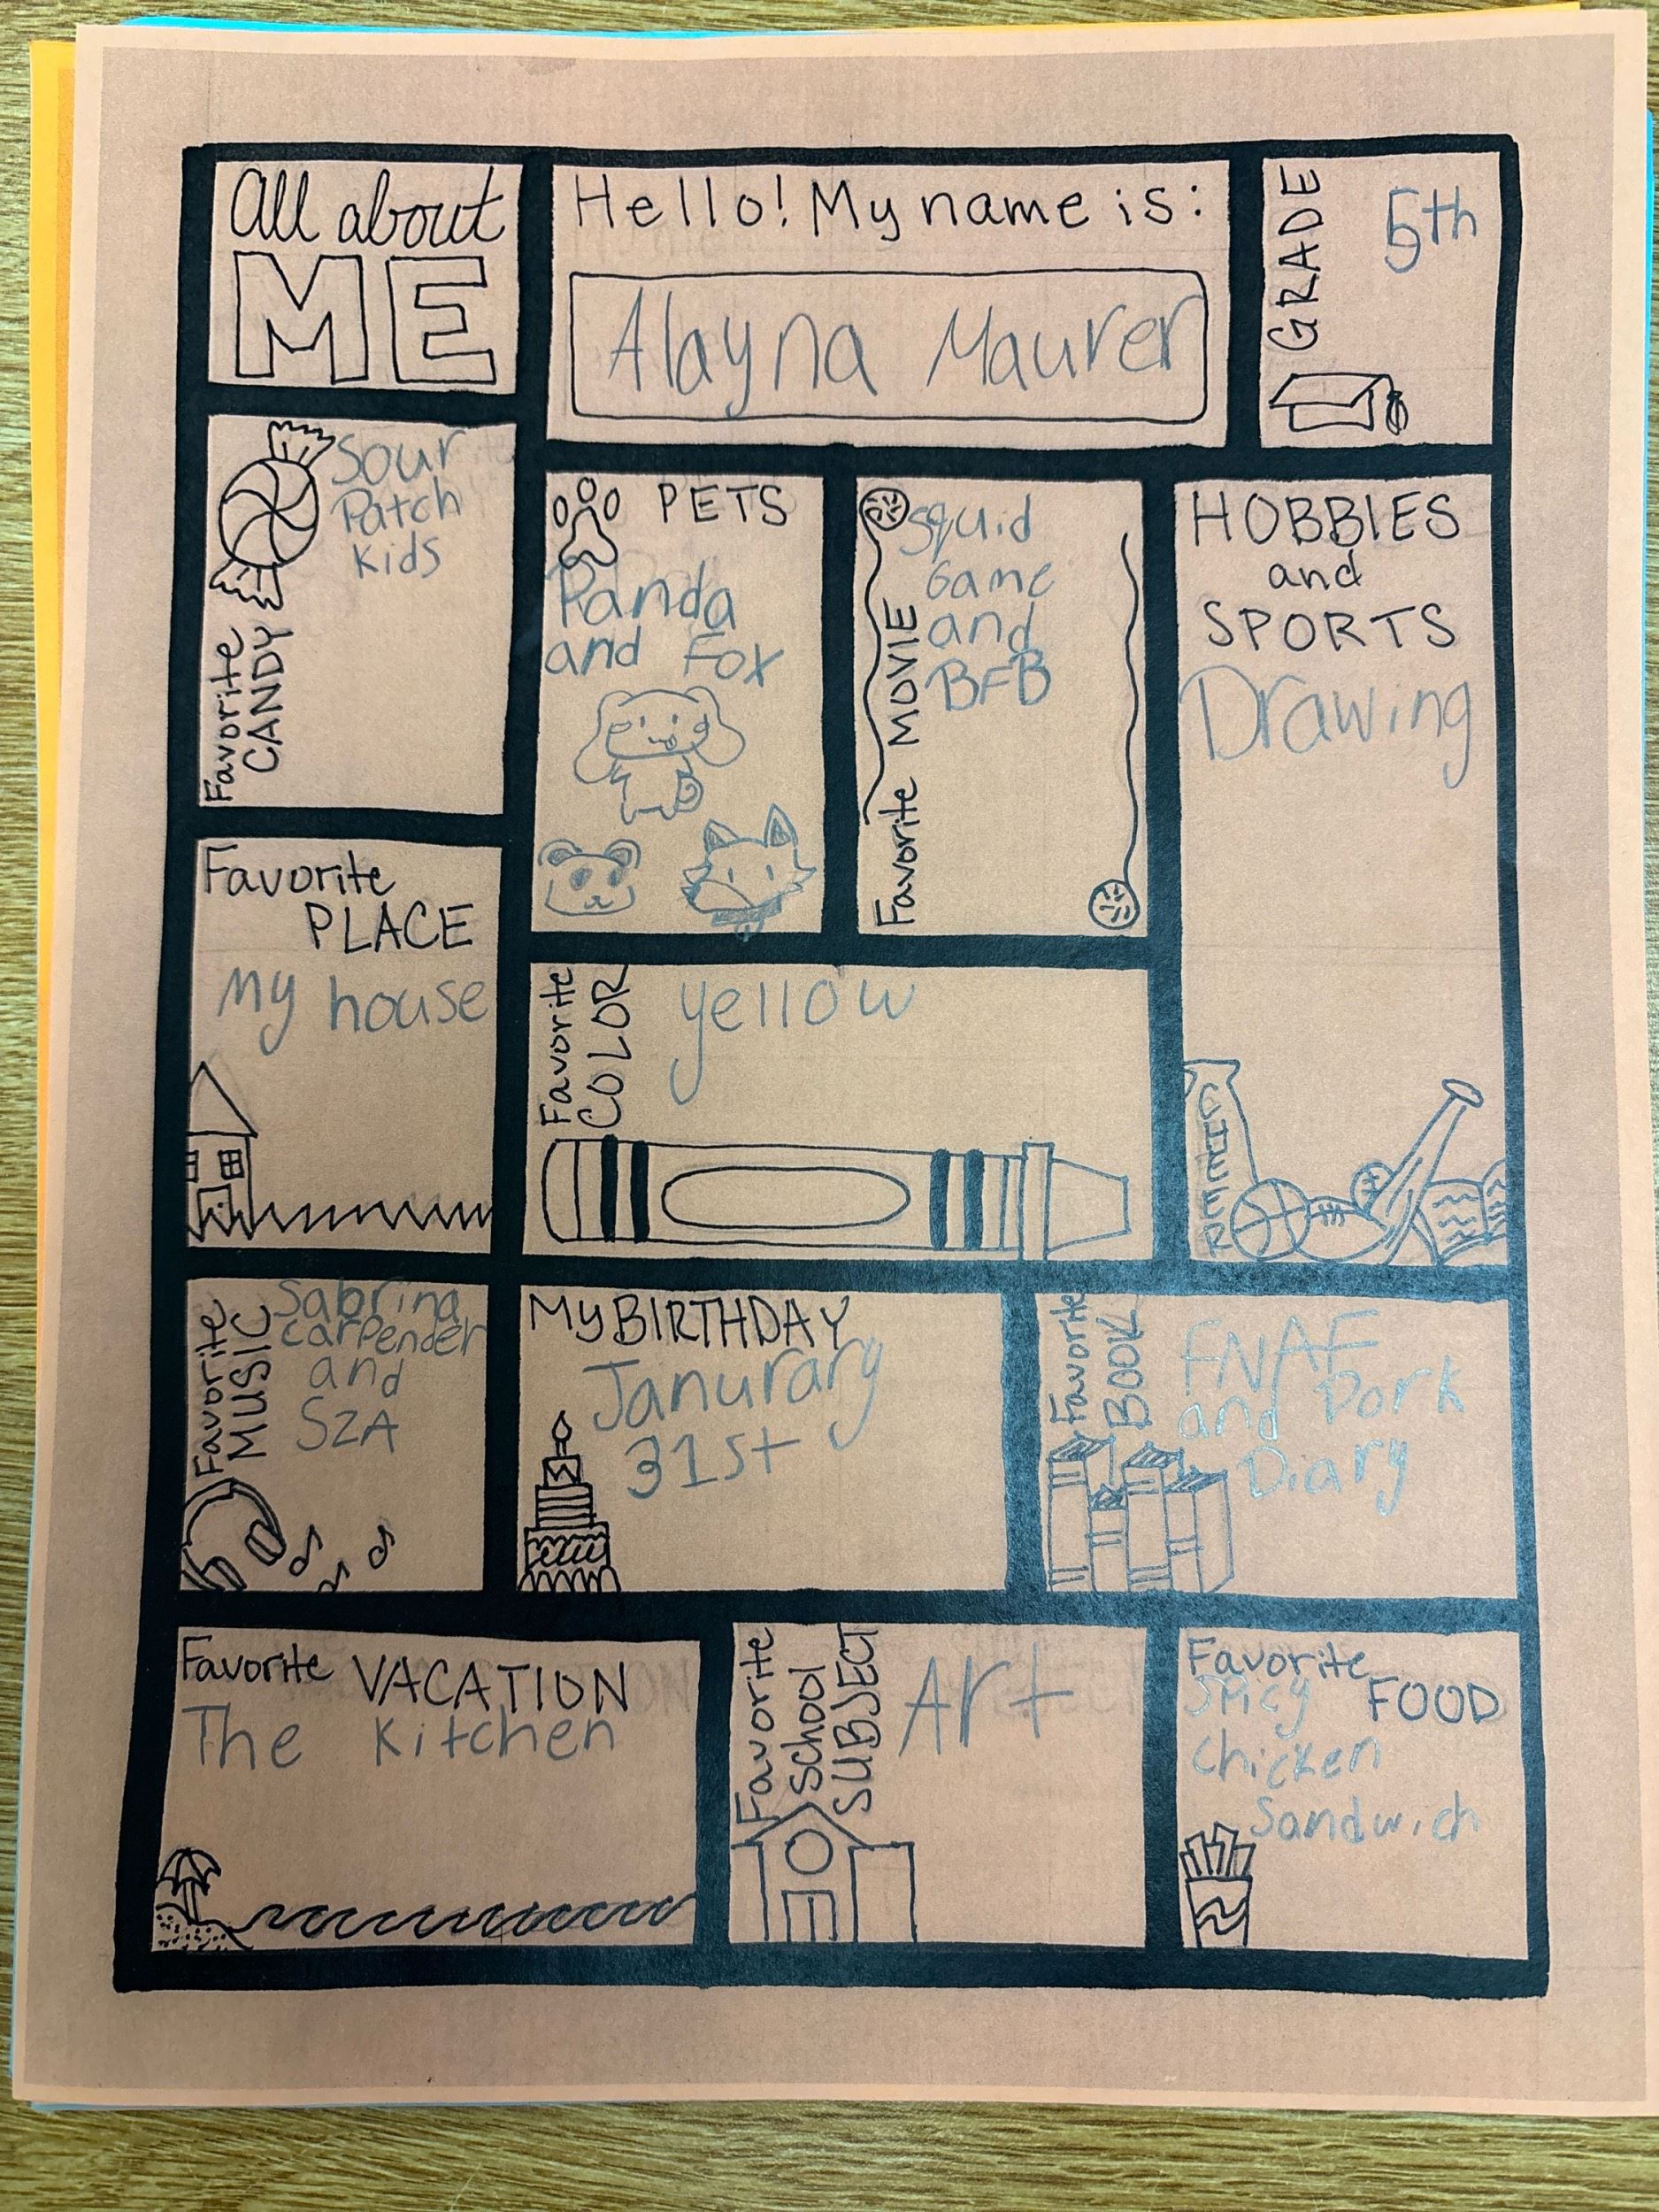 All about
ME
Hello! My name is:
Alayna Maurer
GRADE
5th
Sour
Patch
Kids
Favorite
CANDY
PETS
Panda
and Fox
Squid
Game
and
BFB
Favorite MOVIE
HOBBIES
and
SPORTS
Drawing
Favorite
PLACE
My house
Favorite
COLOR
yellow
Favorite
MUSIC
Sabrina
Carpender
and
SZA
My BIRTHDAY
Janurary
31st
Favorite
BOOK
FNAF
and Dork
Diary
Favorite VACATION
The Kitchen
Favorite
School
SUBJECT
Art
Favorite
FOOD
Spicy
Chicken
Sandwich